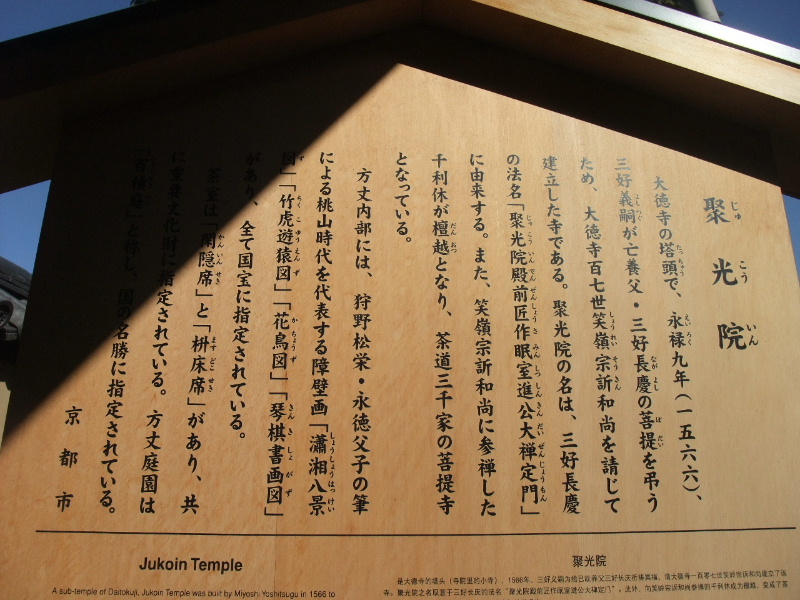 聚光院
大徳寺の塔頭で、永禄九年(一五六六)、
三好義嗣が亡養父・三好長慶の菩提を弔う
ため、大徳寺百七世笑嶺宗訢和尚を請じて
建立した寺である。聚光院の名は、三好長慶
の法名「聚光院殿前匠作眠室進公大禅定門」
に由来する。また、笑嶺宗訢和尚に参禅した
千利休が檀越となり、茶道三千家の菩提寺
となっている。
方丈内部には、狩野松栄・永徳父子の筆
による桃山時代を代表する障壁画「瀟湘八景
図」「竹虎遊猿図」「花鳥図」「琴棋書画図」
があり、全て国宝に指定されている。
茶室は「閑隠席」と「枡床席」があり、共
に重要文化財に指定されている。方丈庭園は
「百積庭」と称し、国の名勝に指定されている。
京都市
Jukoin Temple
A sub-temple of Daitokuji, Jukoin Temple was built by Miyoshi Yoshitsugu in 1566 to
聚光院
是大德寺的塔头(寺院里的小寺)。1566年、三好义嗣为给已故养父三好长庆祈祷冥福,请大德寺一百零七世笑岭宗䜣和尚建立了该
寺。聚光院之名取意于三好长庆的法名“聚光院殿前匠作眠室进公大禅定门”。此外,向笑岭宗䜣和尚参禅的千利休成为檀越,变成了茶